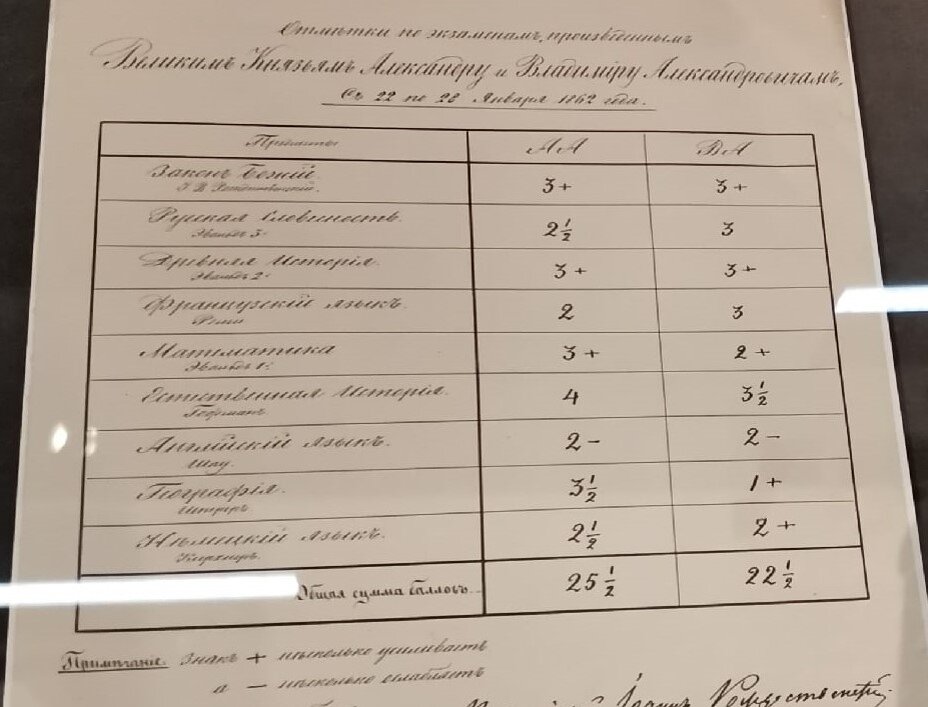 Отмѣтки по экзаменамъ, произведеннымъ
Великимъ Князьямъ Александру и Владиміру Александровичамъ,
Съ 22 по 28 Января 1862 года.
Предметы АА ВА
Законъ Божій. 3+ 3+
І. В. Рождественскій.
Русская Словесность. 2½ 3
Эвальдъ 3й
Древняя Исторія. 3+ 3+
Эвальдъ 2й
Французскій языкъ. 2 3
Реми
Математика 3+ 2+
Эвальдъ 1й
Естественная Исторія. 4 3½
Гофманъ
Англійскій языкъ. 2- 2-
Шау.
География. 3½ 1+
Нѣмецкій языкъ. 2½ 2+
Общая сумма балловъ. 25½ 22½
Примѣчаніе. Знакъ + нѣсколько усиливаетъ
а — нѣсколько ослабляетъ
Іоаннъ Рождественскій.